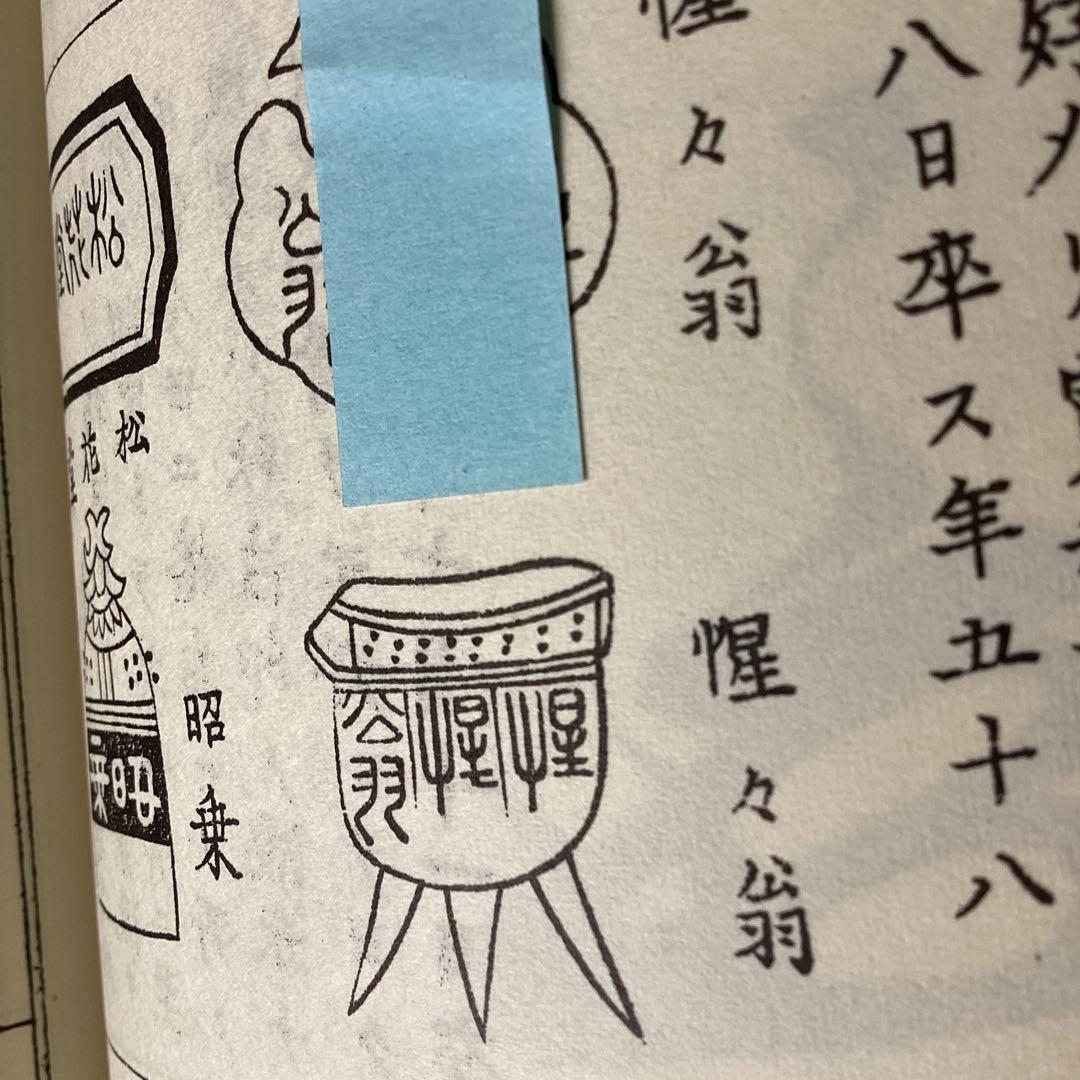 八日卒ス年五十八
惺々翁
惺々翁
惺惺翁
松花堂
松花堂
昭乗
昭乗